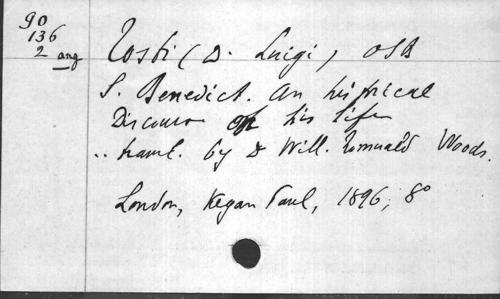 90
136
2 ang
Tosti (D. Luigi) OSB
S. Benedict. An historical
Discourse on his life
.. transl. by D Will. Romuald Woods.
London, Kegan Paul, 1896, 8°